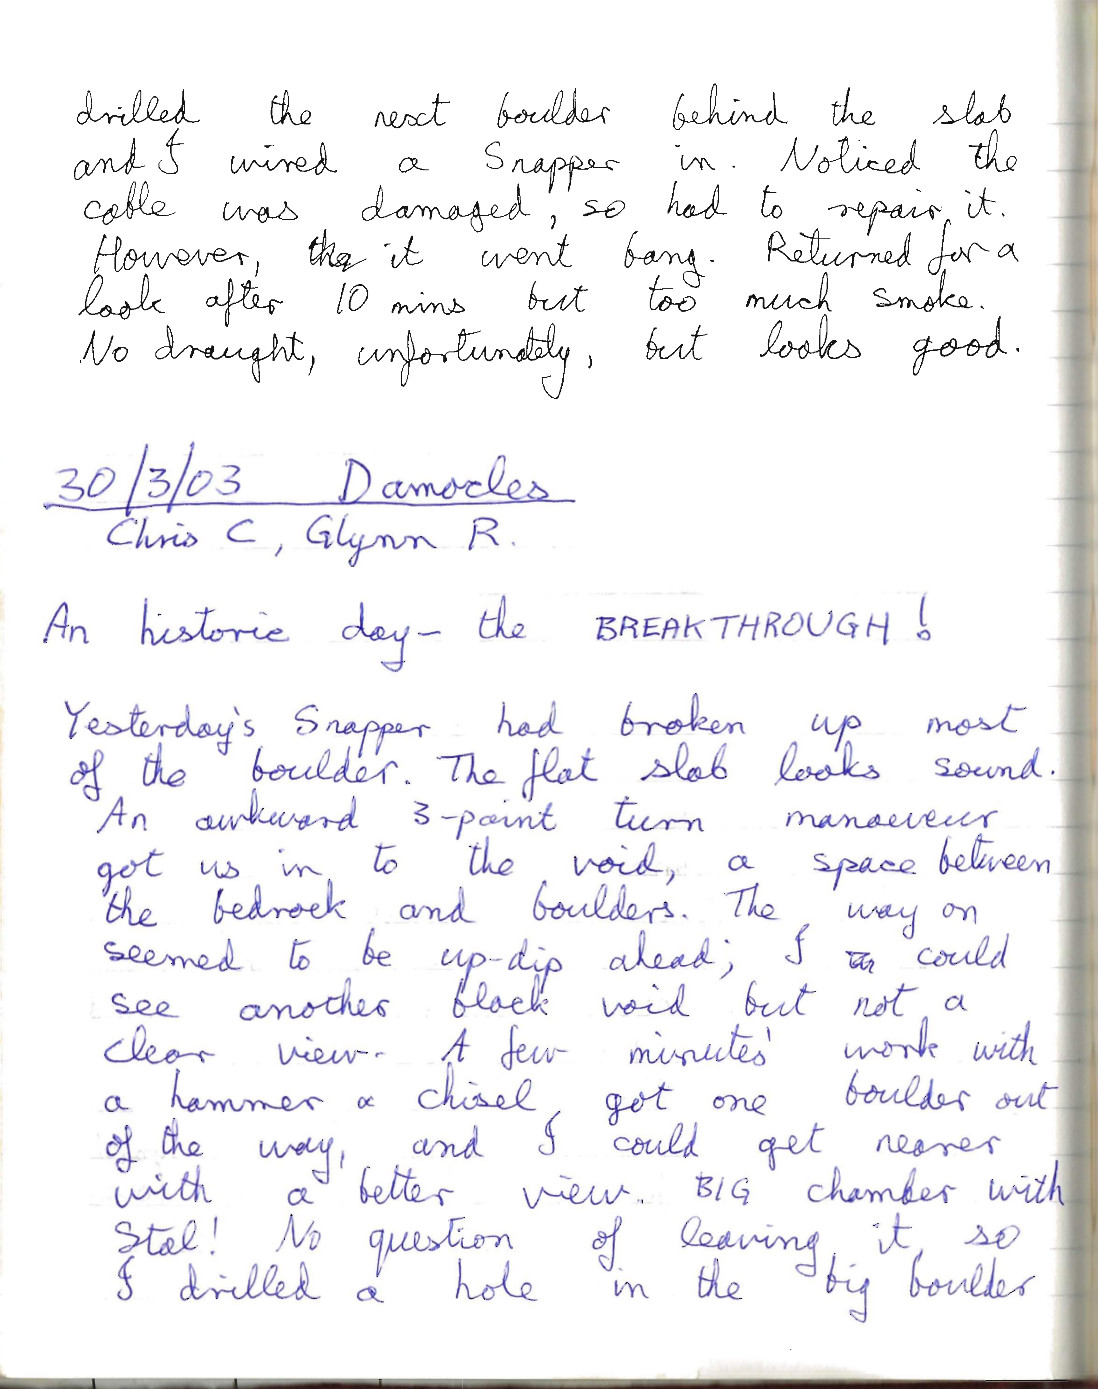 drilled the next boulder behind the slab
and I wired a Snapper in. Noticed the
cable was damaged, so had to repair it.
However, the it went bang. Returned for a
look after 10 mins but too much smoke.
No draught, unfortunately, but looks good.
30/3/03 Damocles
Chris C, Glynn R.
An historic day - the BREAKTHROUGH!
Yesterday's Snapper had broken up most
of the boulder. The flat slab looks sound.
An awkward 3-point turn manoeveur
got us in to the void, a space between
the bedrock and boulders. The way on
seemed to be up-dip ahead; I could
see another black void but not a
clear view. A few minutes' work with
a hammer & chisel got one boulder out
of the way, and I could get nearer
with a better view. BIG chamber with
Stal! No question of leaving it, so
I drilled a hole in the big boulder